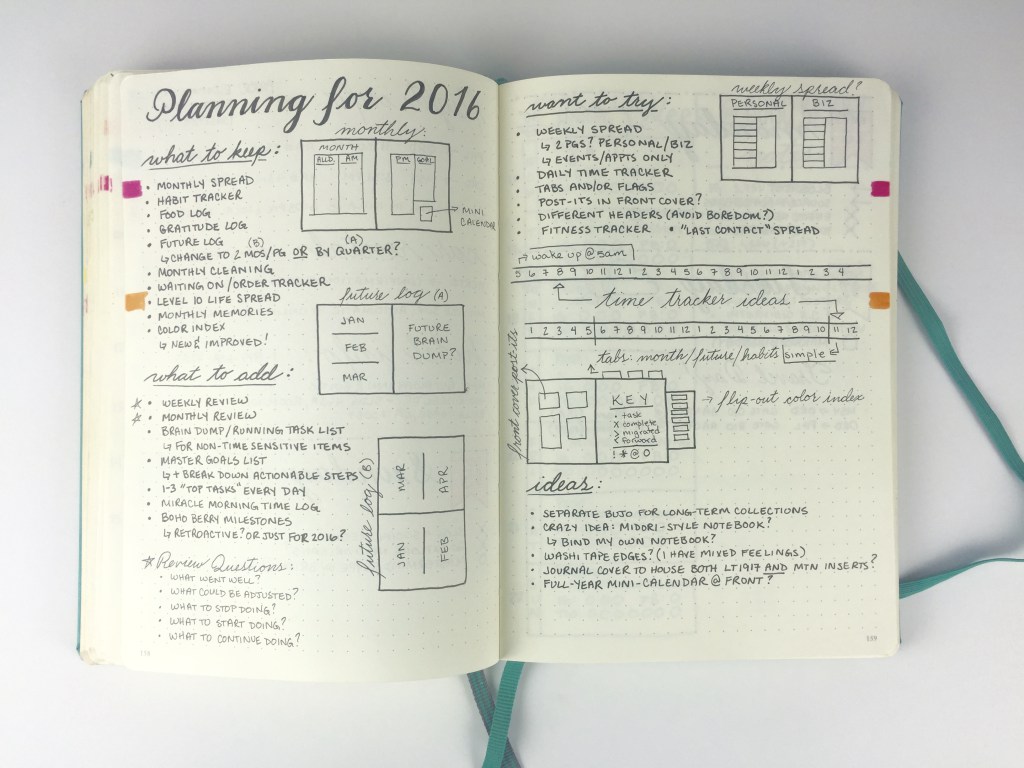 Planning for 2016
what to keep:
• MONTHLY SPREAD
• HABIT TRACKER
• FOOD LOG
• GRATITUDE LOG
• FUTURE LOG
↳ CHANGE TO 2 MOS/PG OR BY QUARTER?
(B) (A)
• MONTHLY CLEANING
• WAITING ON/ORDER TRACKER
• LEVEL 10 LIFE SPREAD
• MONTHLY MEMORIES
• COLOR INDEX
↳ NEW & IMPROVED!
monthly:
MONTH
ALL D. AM
PM GOAL
→ MINI
CALENDAR
future log (A)
JAN
FEB
MAR
FUTURE
BRAIN
DUMP?
what to add:
* • WEEKLY REVIEW
* • MONTHLY REVIEW
• BRAIN DUMP/RUNNING TASK LIST
↳ FOR NON-TIME SENSITIVE ITEMS
• MASTER GOALS LIST
↳ + BREAK DOWN ACTIONABLE STEPS
• 1-3 "TOP TASKS" EVERY DAY
• MIRACLE MORNING TIME LOG
• BOHO BERRY MILESTONES
↳ RETROACTIVE? OR JUST FOR 2016?
future log (B)
JAN
FEB
MAR
APR
* Review Questions:
• WHAT WENT WELL?
• WHAT COULD BE ADJUSTED?
• WHAT TO STOP DOING?
• WHAT TO START DOING?
• WHAT TO CONTINUE DOING?
158
want to try:
• WEEKLY SPREAD
↳ 2 PGS? PERSONAL/BIZ
↳ EVENTS/APPTS ONLY
• DAILY TIME TRACKER
• TABS AND/OR FLAGS
• POST-ITS IN FRONT COVER?
• DIFFERENT HEADERS (AVOID BOREDOM?)
• FITNESS TRACKER • "LAST CONTACT" SPREAD
weekly spread?
PERSONAL BIZ
wake up @ 5am
5 6 7 8 9 10 11 12 1 2 3 4 5 6 7 8 9 10 11 12 1 2 3 4
time tracker ideas
1 2 3 4 5 6 7 8 9 10 11 12 1 2 3 4 5 6 7 8 9 10 11 12
tabs: month/future/habits simple
front cover post-its
KEY
• task
x complete
> migrated
< forward
! * @ O
→ flip-out color index
ideas:
• SEPARATE BUJO FOR LONG-TERM COLLECTIONS
• CRAZY IDEA: MIDORI-STYLE NOTEBOOK?
↳ BIND MY OWN NOTEBOOK?
• WASHI TAPE EDGES? (I HAVE MIXED FEELINGS)
• JOURNAL COVER TO HOUSE BOTH LT1917 AND MTN INSERTS?
• FULL-YEAR MINI-CALENDAR @ FRONT?
159